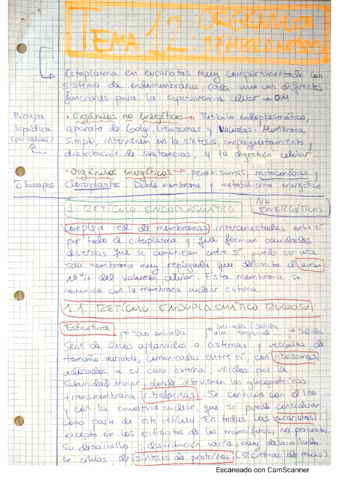 TEMA 12. ORGÁNULOS
MEMBRANOSOS
Citoplasma en eucariotas muy compartimentado con
sistema de endomembranas, cada una con diferentes
funciones para la supervivencia celular → OM
Bicapa
lipídica
• Orgánulos no energéticos → Retículo endoplasmático,
aparato de Golgi, lisosomas y vacuolas. Membrana
simple, intervienen en la síntesis, empaquetamiento y
distribución de sustancias, y la digestión celular
• Orgánulos energéticos → peroxisomas, mitocondrias y
2 bicapas
cloroplastos. Doble membrana y metabolismo energético
1. RETÍCULO ENDOPLASMÁTICO
NO
ENERGÉTICOS
Compleja red de membranas interconectadas entre sí
por todo el citoplasma y que forman cavidades
diversas que se comunican entre sí, puede ser una
sola membrana muy replegada que delimita
10% del volumen celular. Esta membrana se
comunica con la membrana nuclear externa
1.1. RETÍCULO ENDOPLASMÁTICO RUGOSO
Estructura
Serie de sacos aplanados o cisternas y vesículas de
tamaño variable, comunicadas entre sí, con ribosomas
adosados a su cara externa, unidos por la
subunidad mayor, donde intervienen las glucoproteínas
transmembrana (riboforinas). Se continúa con el liso
y con la envoltura nuclear, que se puede considerar
como parte de este retículo. En todas las eucariotas
excepto en los eritrocitos de los mamíferos, no procariotas
Su desarrollo y distribución varía, muy desarrollado
en células de síntesis de proteínas (secretoras de moco)
Escaneado con CamScanner